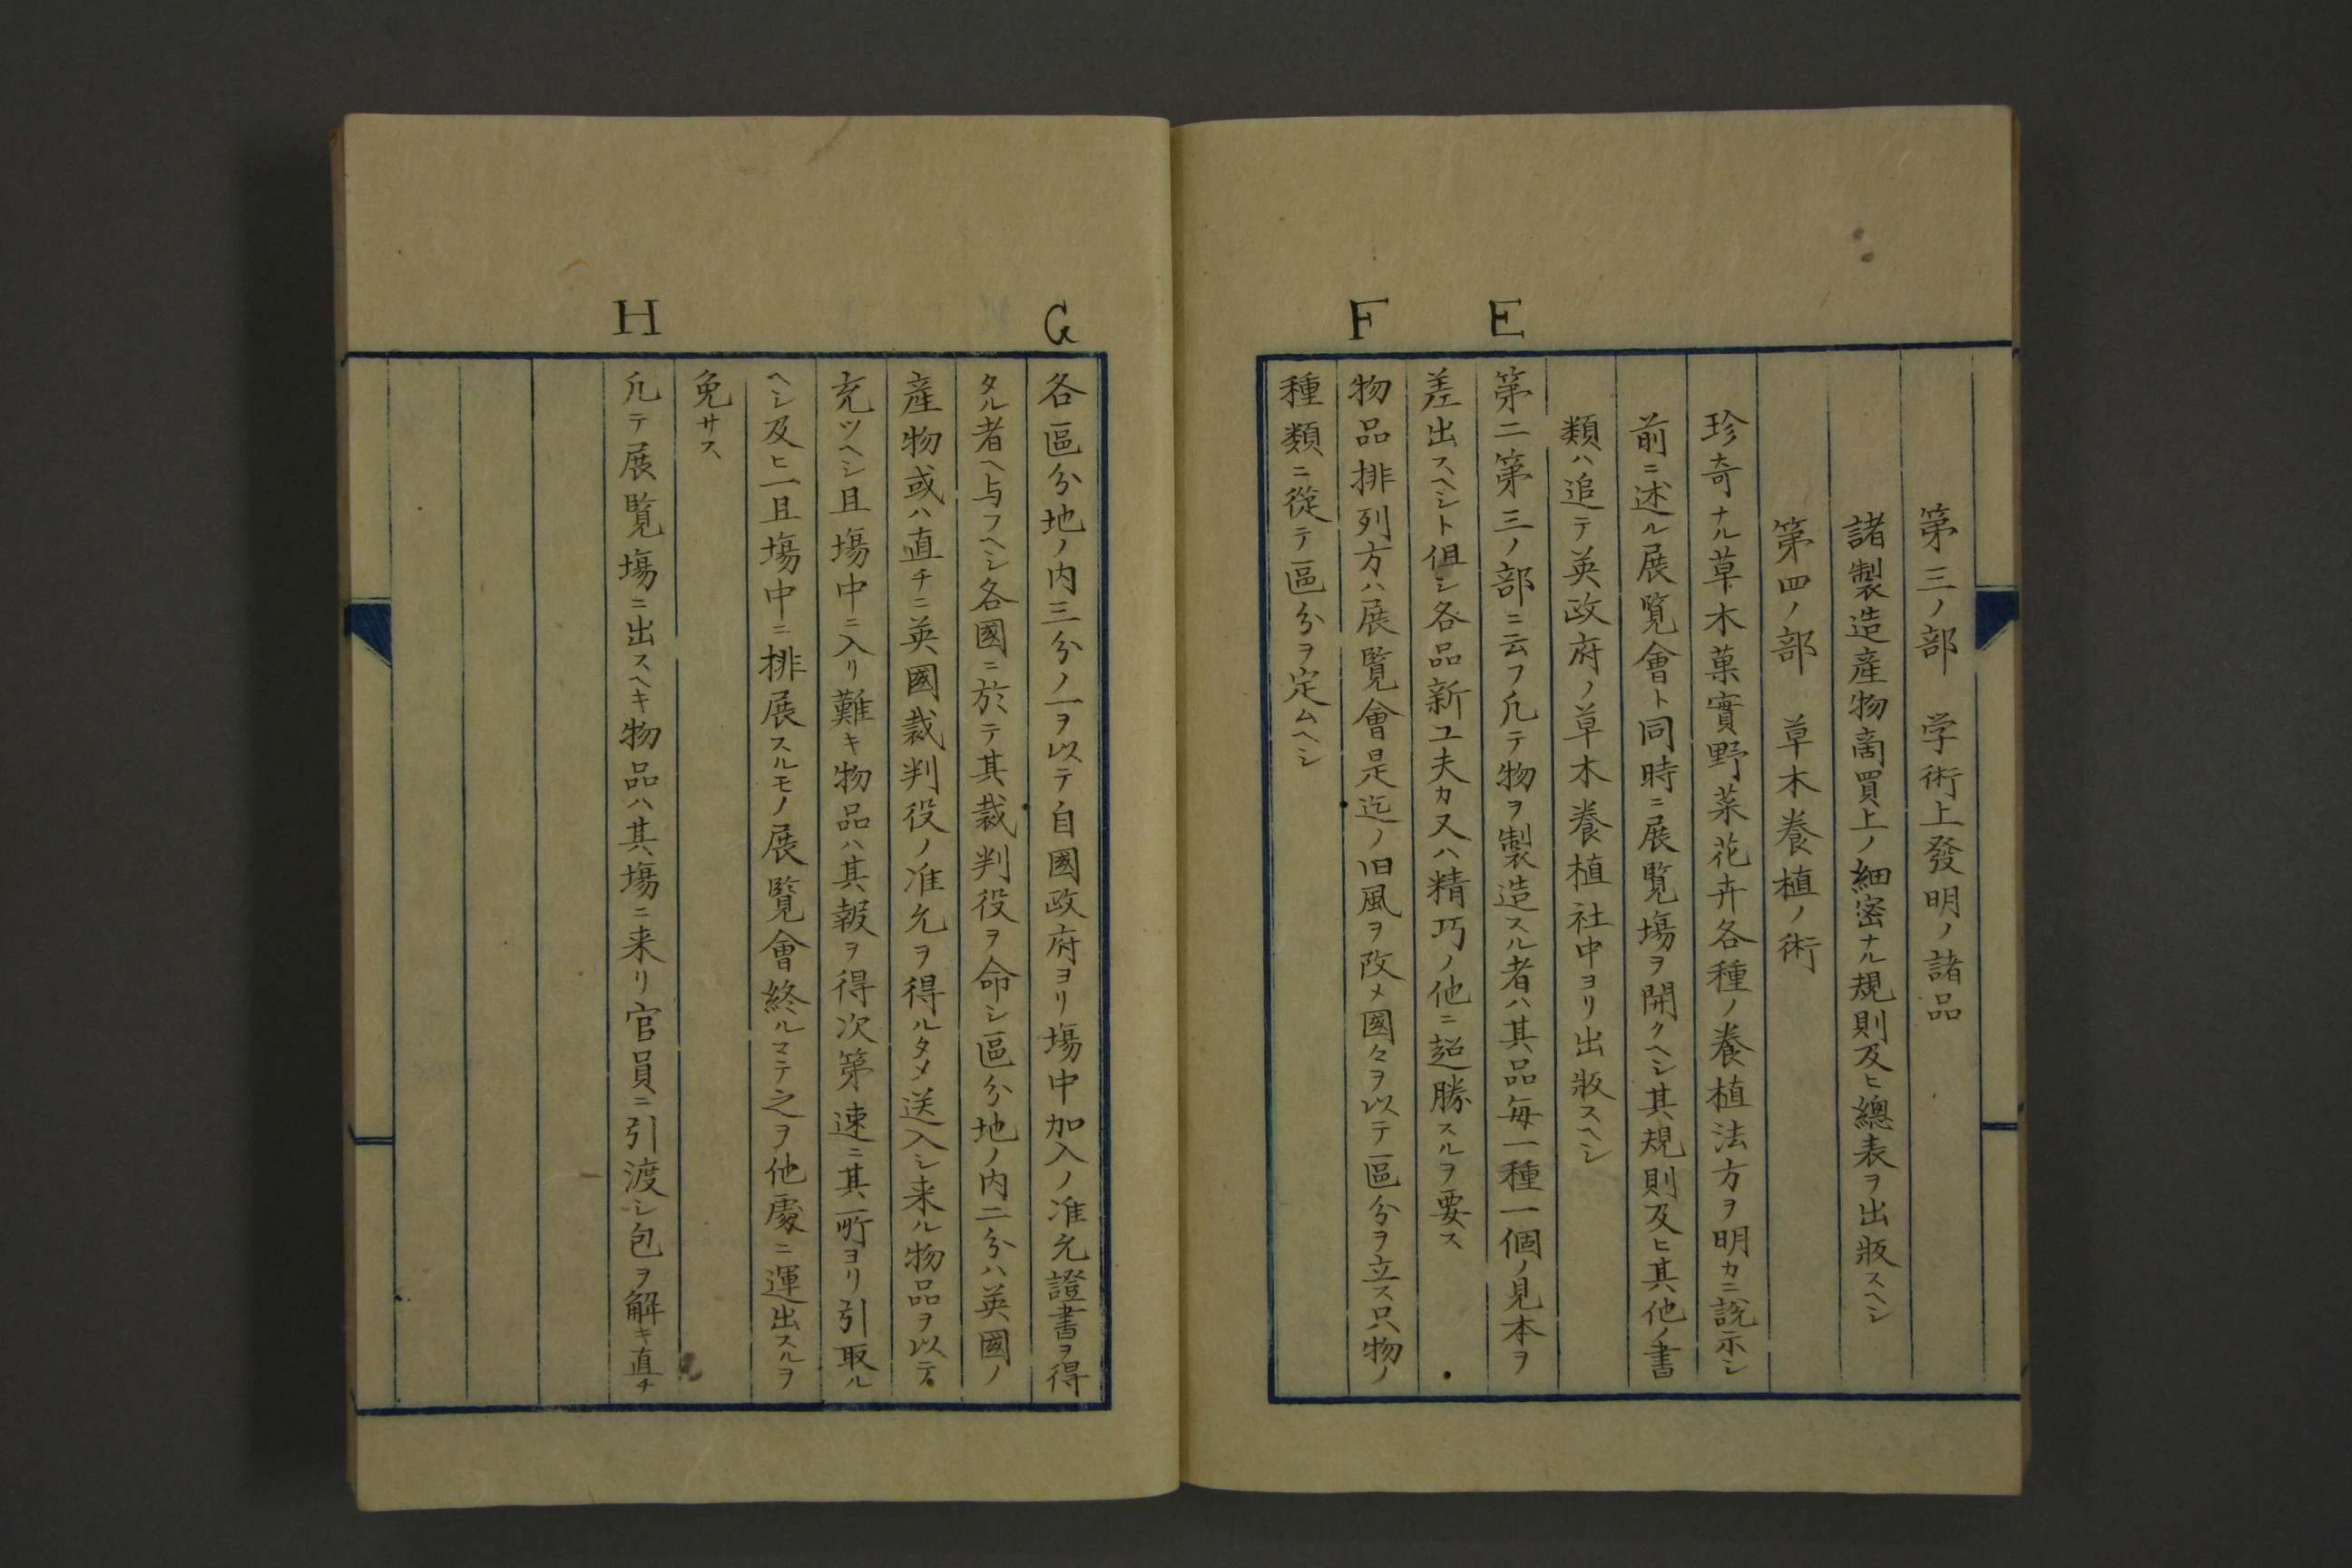 第三ノ部　学術上發明ノ諸品
諸製造産物啇買上ノ細密ナル規則及ヒ總表ヲ出版スヘシ
第四ノ部　草木養植ノ術
珍奇ナル草木菓實野菜花卉各種ノ養植法方ヲ明カニ説示シ
前ニ述ル展覧會ト同時ニ展覧塲ヲ開クヘシ其規則及ヒ其他ノ書
類ハ追テ英政府ノ草木養植社中ヨリ出版スヘシ
E
第二第三ノ部ニ云フ凡テ物ヲ製造スル者ハ其品毎一種一個ノ見本ヲ
差出スヘシト但シ各品新工夫カ又ハ精巧ノ他ニ超勝スルヲ要ス
F
物品排列方ハ展覧會是迄ノ旧風ヲ改メ國々ヲ以テ區分ヲ立ス只物ノ
種類ニ從テ區分ヲ定ムヘシ
G
各區分地ノ内三分ノ一ヲ以テ自國政府ヨリ塲中加入ノ准允證書ヲ得
タル者ヘ与フヘシ各國ニ於テ其裁判役ヲ命シ區分地ノ内二分ハ英國ノ
産物或ハ直チニ英國裁判役ノ准允ヲ得ルタメ送入シ来ル物品ヲ以テ
充ツヘシ且塲中ニ入リ難キ物品ハ其報ヲ得次第速ニ其所ヨリ引取ル
ヘシ及ヒ一旦塲中ニ排展スルモノ展覧會終ルマテ之ヲ他處ニ運出スルヲ
免サス
H
凡テ展覧塲ニ出スヘキ物品ハ其塲ニ来リ官員ニ引渡シ包ヲ解キ直チ